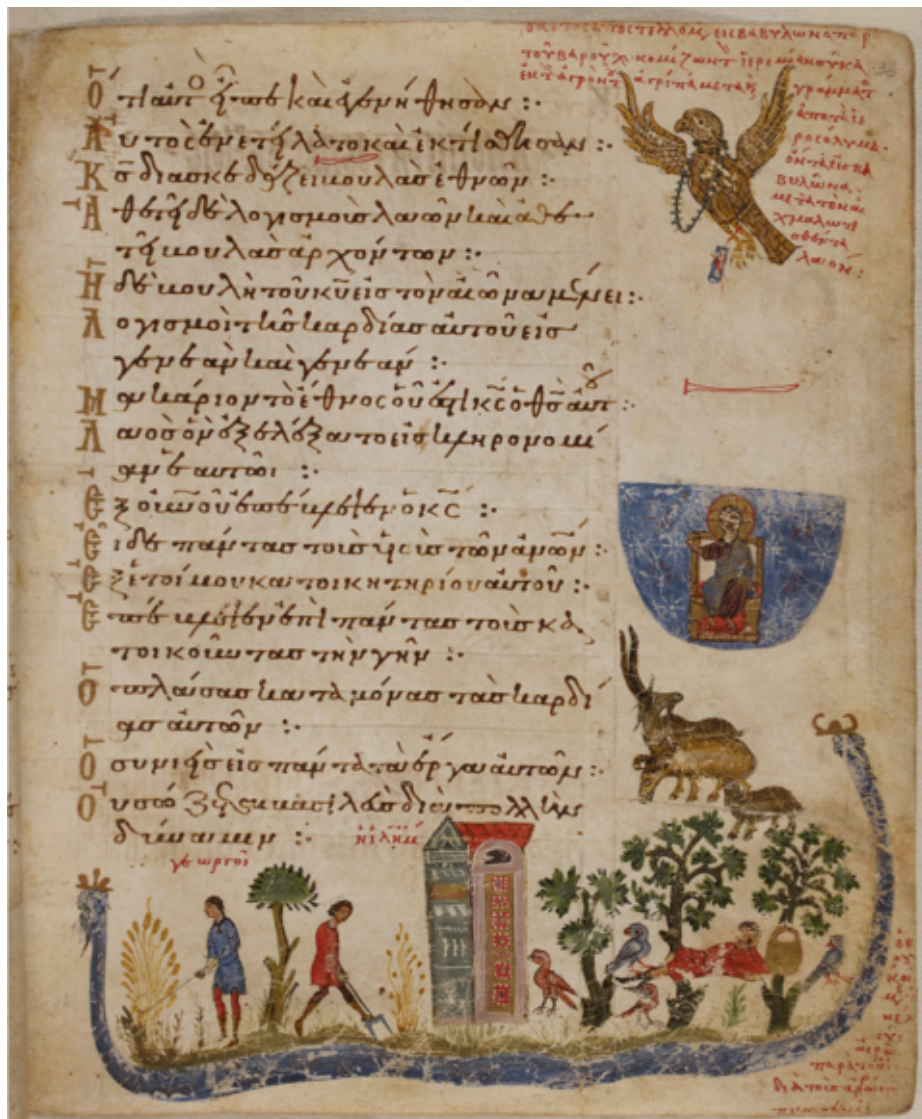 Ὅτι αὐτὸς εἶπε καὶ ἐγενήθησαν :·
Αὐτὸς ἐνετείλατο καὶ ἐκτίσθησαν :·
Κς διασκεδάζει βουλὰς ἐθνῶν :·
Ἀθετεῖ δὲ λογισμοὺς λαῶν καὶ ἀθε
τεῖ βουλὰς ἀρχόντων :·
Ἡ δὲ βουλὴ τοῦ κυ εἰς τὸν αἰῶνα μένει :·
Λογισμοὶ τῆς καρδίας αὐτοῦ εἰς
γενεὰν καὶ γενεάν :·
Μακάριον τὸ ἔθνος οὗ ἐστι κς ὁ θς αὐτοῦ :·
Λαὸς ὃν ἐξελέξατο εἰς κληρονομί
αν ἑαυτῶι :·
Ἐξ οὐνοῦ ἐπέβλεψεν ὁ κς :·
Εἶδε πάντας τοὺς υἱοὺς τῶν ἀνων :·
Ἐξ ἑτοίμου κατοικητηρίου αὐτοῦ :·
Ἐπέβλεψεν ἐπὶ πάντας τοὺς κα
τοικοῦντας τὴν γῆν :·
Ὁ πλάσας κατὰ μόνας τὰς καρδί
ας αὐτῶν :·
Ὁ συνιεὶς εἰς πάντα τὰ ἔργα αὐτῶν :·
Οὐ σώζεται βασιλεὺς διὰ πολλὴν
δύναμιν :·
γεωργοὶ
εἰς βαβυλῶνα
γράμματ
ἀπὸ τῆς ἱε
ροσόλυμα
βυλῶνα
36